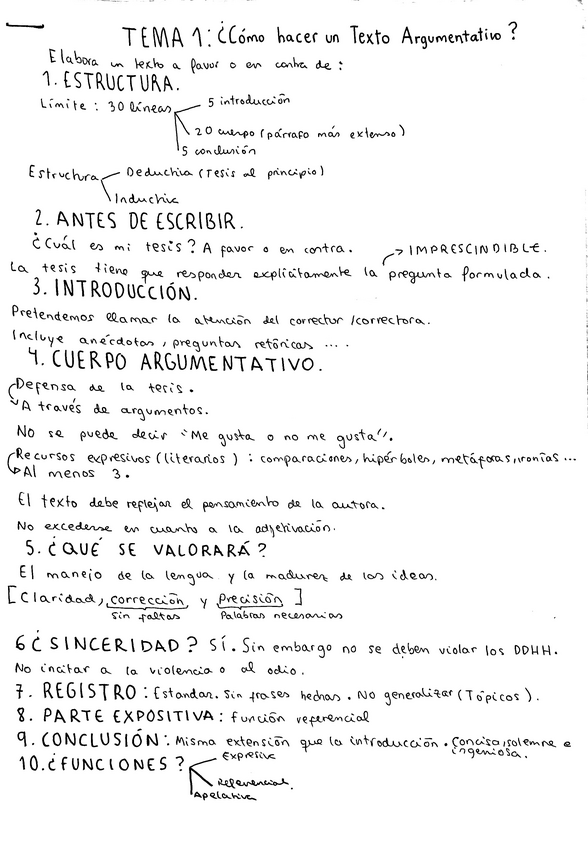 TEMA 1: ¿Cómo hacer un Texto Argumentativo?
Elabora un texto a favor o en contra de:
1. ESTRUCTURA.
Límite: 30 líneas
5 introducción
20 cuerpo (párrafo más extenso)
5 conclusión
Estructura
Deductiva (Tesis al principio)
Inductiva
2. ANTES DE ESCRIBIR.
¿Cuál es mi tesis? A favor o en contra.
→ IMPRESCINDIBLE.
La tesis tiene que responder explícitamente la pregunta formulada.
3. INTRODUCCIÓN.
Pretendemos llamar la atención del corrector/correctora.
Incluye anécdotas, preguntas retóricas ....
4. CUERPO ARGUMENTATIVO.
Defensa de la tesis.
A través de argumentos.
No se puede decir "Me gusta o no me gusta".
Recursos expresivos (literarios): comparaciones, hipérboles, metáforas, ironías ...
Al menos 3.
El texto debe reflejar el pensamiento de la autora.
No excederse en cuanto a la adjetivación.
5. ¿QUÉ SE VALORARÁ?
El manejo de la lengua y la madurez de las ideas.
[Claridad, corrección y Precisión]
Sin faltas
Palabras necesarias
6 ¿SINCERIDAD? SÍ. Sin embargo no se deben violar los DDHH.
No incitar a la violencia o al odio.
7. REGISTRO: Estandar. Sin frases hechas. No generalizar (Tópicos).
8. PARTE EXPOSITIVA: Función referencial
9. CONCLUSIÓN: Misma extensión que la introducción. Concisa, solemne e
ingeniosa.
10. ¿FUNCIONES?
Expresiva
Referencial.
Apelativa